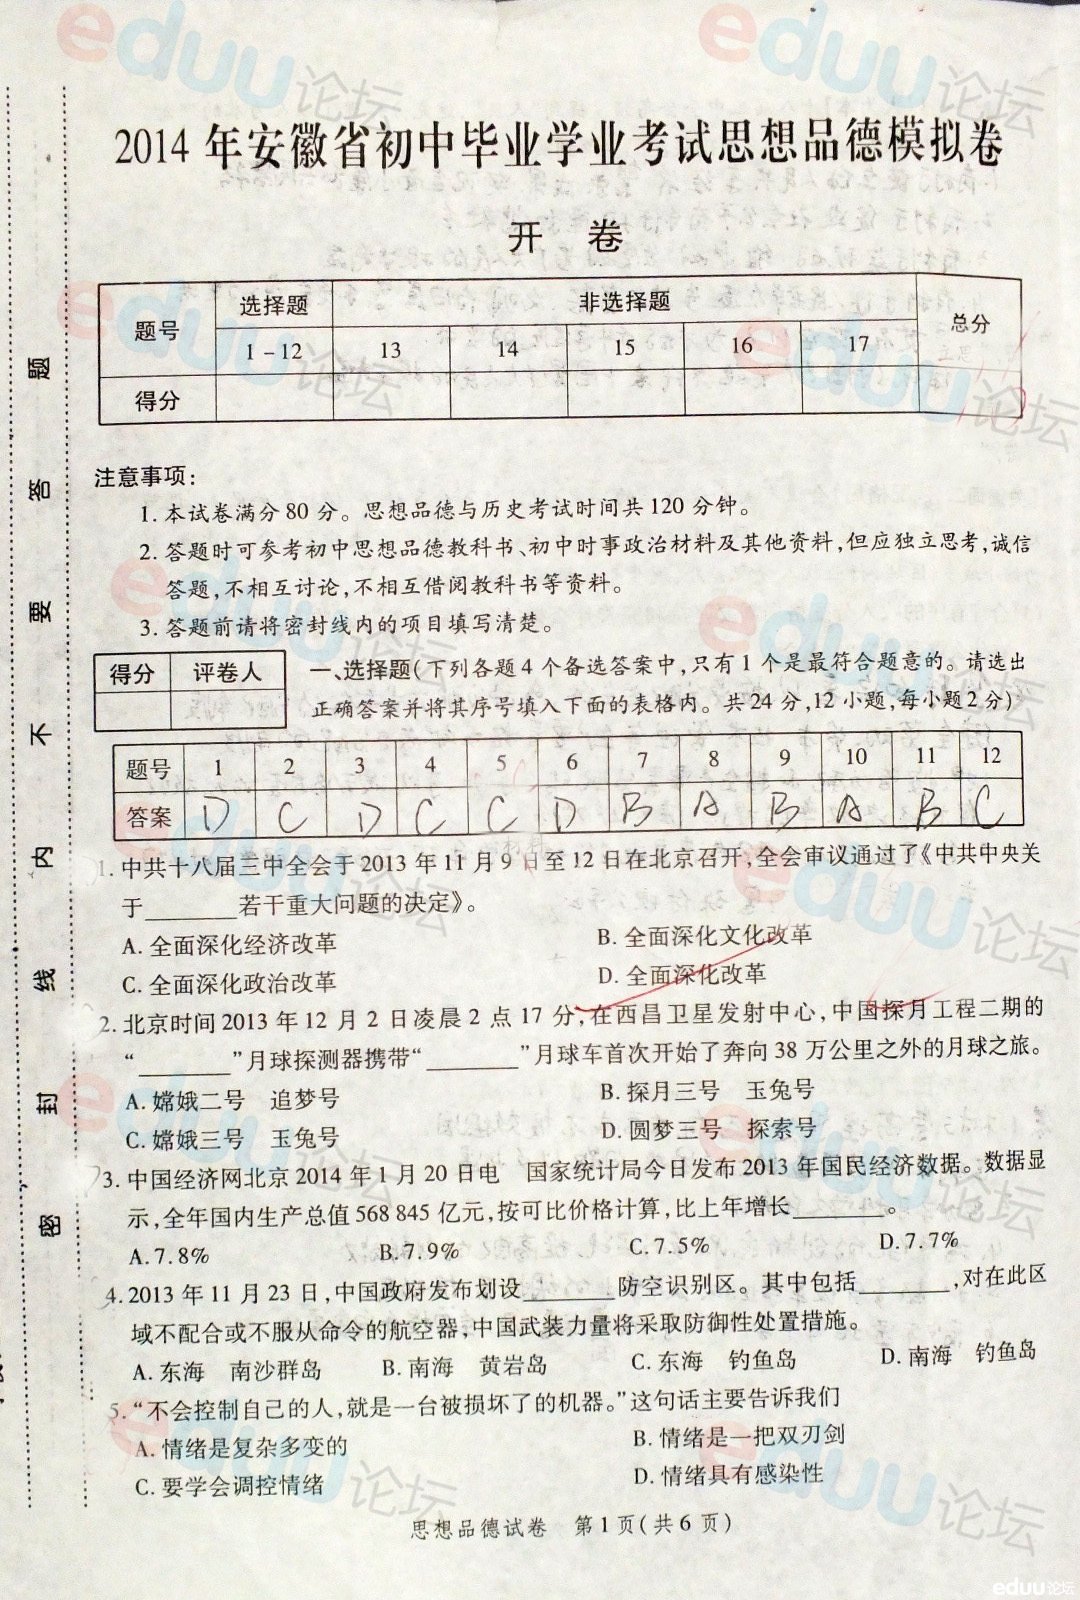 2014 年安徽省初中毕业学业考试思想品德模拟卷
开 卷
题号 选择题 非选择题 总分
1-12 13 14 15 16 17
得分
注意事项:
1. 本试卷满分 80 分。思想品德与历史考试时间共 120 分钟。
2. 答题时可参考初中思想品德教科书、初中时事政治材料及其他资料,但应独立思考,诚信
答题,不相互讨论,不相互借阅教科书等资料。
3. 答题前请将密封线内的项目填写清楚。
得分 评卷人
一、选择题(下列各题 4 个备选答案中,只有 1 个是最符合题意的。请选出
正确答案并将其序号填入下面的表格内。共 24 分,12 小题,每小题 2 分)
题号 1 2 3 4 5 6 7 8 9 10 11 12
答案 D C D C C D B A B A B C
1. 中共十八届三中全会于 2013 年 11 月 9 日至 12 日在北京召开,全会审议通过了《中共中央关
于________若干重大问题的决定》。
A. 全面深化经济改革 B. 全面深化文化改革
C. 全面深化政治改革 D. 全面深化改革
2. 北京时间 2013 年 12 月 2 日凌晨 2 点 17 分,在西昌卫星发射中心,中国探月工程二期的
“________”月球探测器携带“________”月球车首次开始了奔向 38 万公里之外的月球之旅。
A. 嫦娥二号 追梦号 B. 探月三号 玉兔号
C. 嫦娥三号 玉兔号 D. 圆梦三号 探索号
3. 中国经济网北京 2014 年 1 月 20 日电 国家统计局今日发布 2013 年国民经济数据。数据显
示,全年国内生产总值 568 845 亿元,按可比价格计算,比上年增长________。
A. 7.8% B. 7.9% C. 7.5% D. 7.7%
4. 2013 年 11 月 23 日,中国政府发布划设________防空识别区。其中包括________,对在此区
域不配合或不服从命令的航空器,中国武装力量将采取防御性处置措施。
A. 东海 南沙群岛 B. 南海 黄岩岛 C. 东海 钓鱼岛 D. 南海 钓鱼岛
5. “不会控制自己的人,就是一台被损坏了的机器。”这句话主要告诉我们
A. 情绪是复杂多变的 B. 情绪是一把双刃剑
C. 要学会调控情绪 D. 情绪具有感染性
思想品德试卷 第 1 页(共 6 页)
密 封 线 内 不 要 答 题
eduu论坛